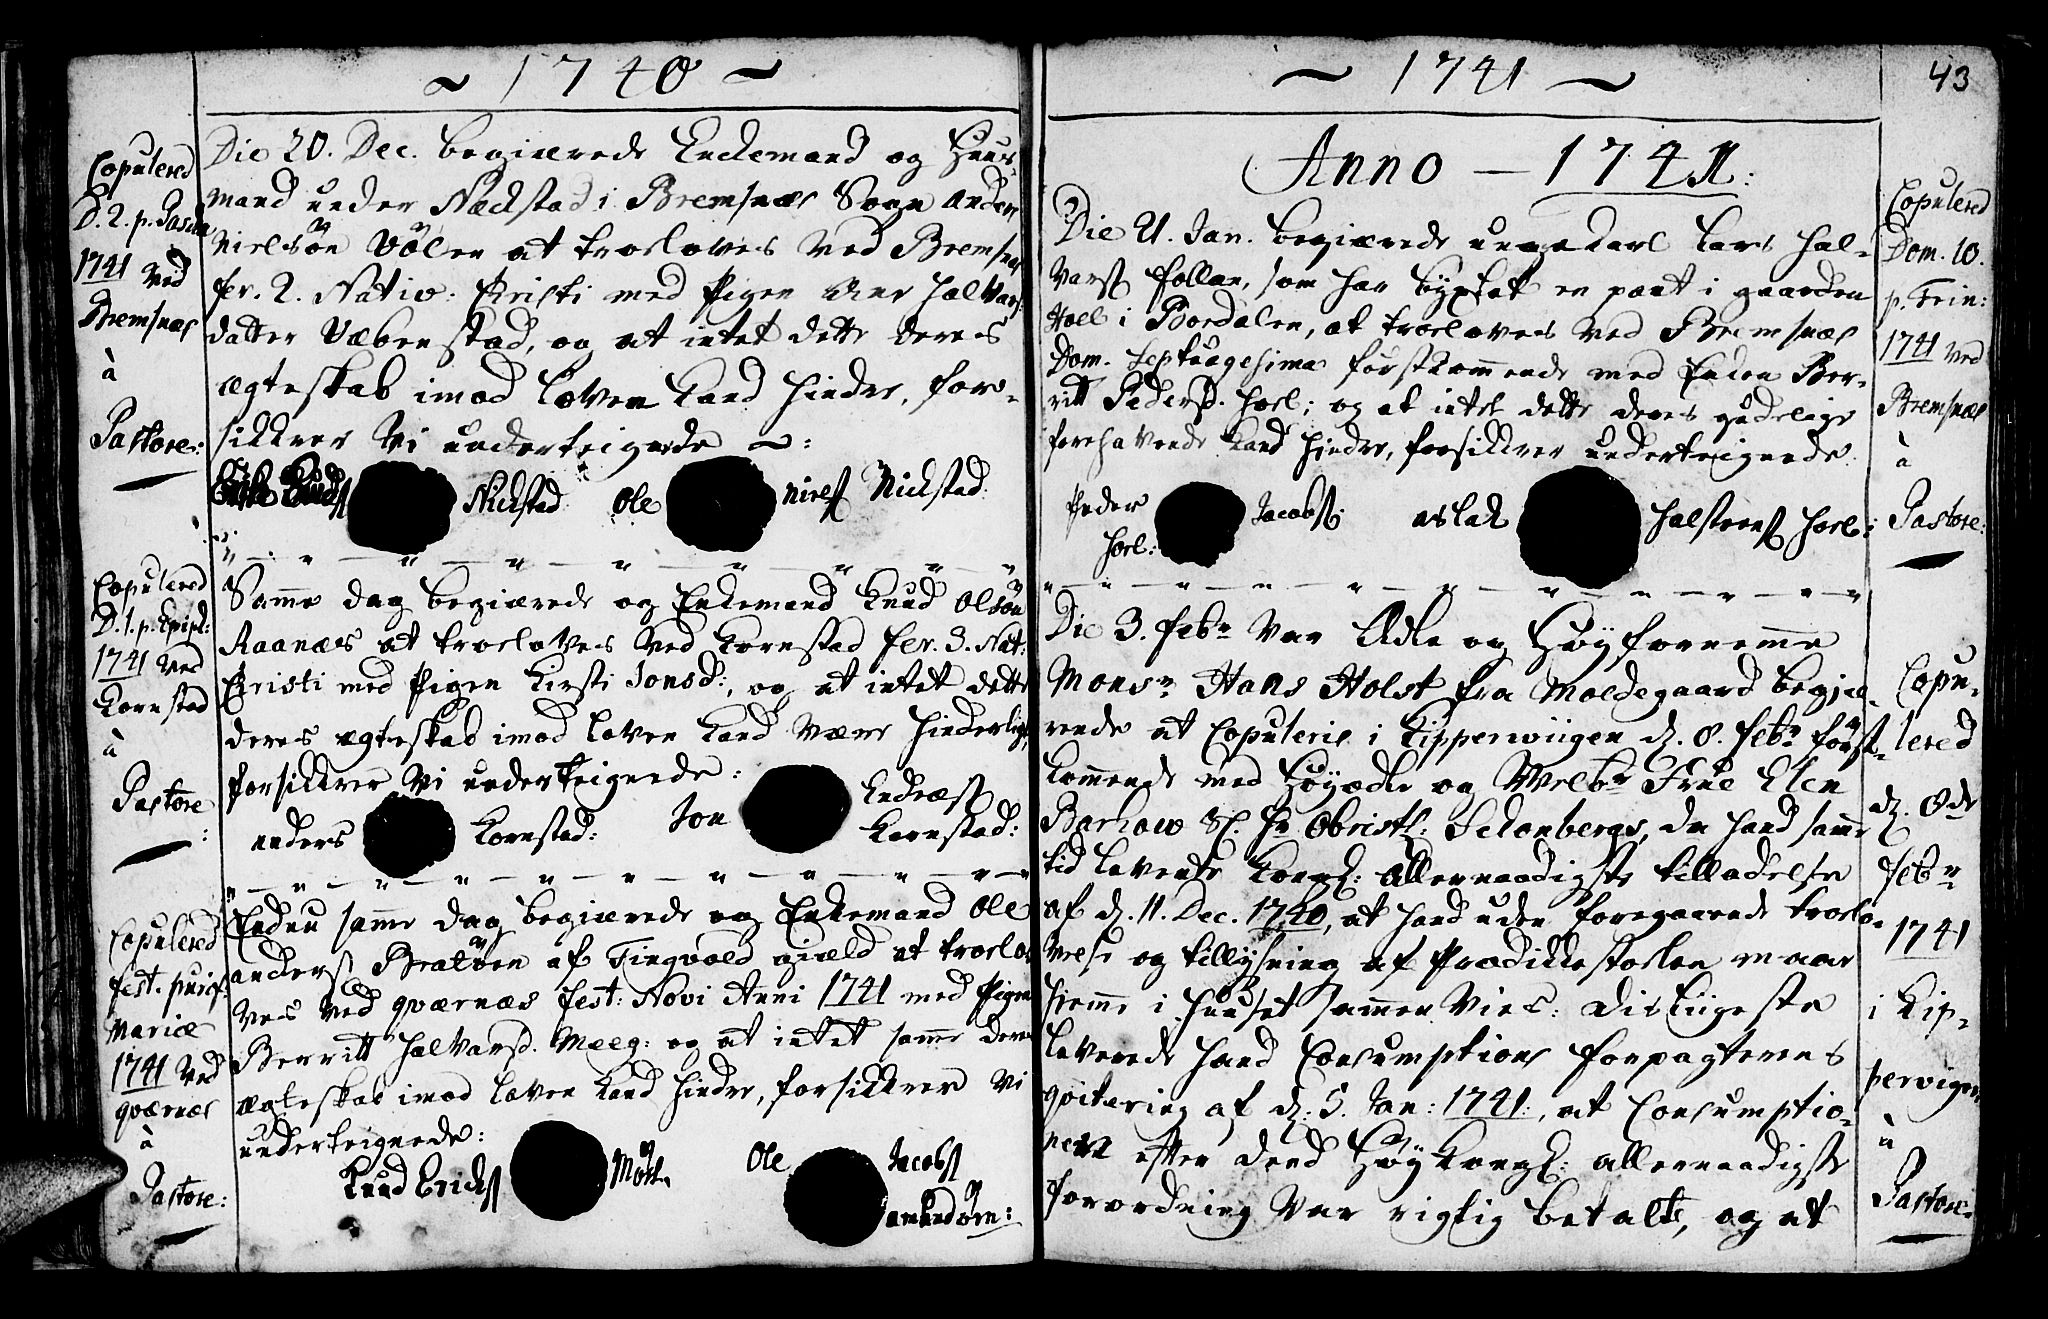 ~ 1740 ~
Copulered
D. 2. p. Pasch.
1741 ved
Bremsnæs
à
Pastore:
Die 20. Dec. begiærede Enckemand og Huus-
mand under Neckstad i Bremsnæs Sogn Anders
Nielsøn Vølen at troeloves ved Bremsnæs
fer. 2. Nativ: Kristi med Pigen Ane Halvars
datter Væbenstad, og at intet dette deres
ægteskab imod Loven kand hindre, for-
sikkrer vi underteignede ~:
Knuds Nickstad Ole Niels Nickstad:
Copulered
D. 1. p. Epiph:
1741 ved
Kornstad
à
Pastore
:
Samme dag begiærede og Enkemand Knud Olsøn
Raanæs at troeloves ved Kornstad fer. 3. Nat:
Christi med Pigen Kirsti Jonsd:, og at intet dette
deres ægteskab imod loven kand være hinderligt,
forsikkrer vi underteignede:
anders Kornstad: Jon Endræs
Kornstad:
Copulered
fest. purif:
Mariæ
1741 ved
qværnæs
à
Pastore:
Endnu samme dag begiærede og Enkemand Ole
anders Bratøen af Tingvold gield at troelo-
ves ved qværnæs fest: Novi Anni 1741 med Pigen
Berritt Halvarsd. Meeg: og at intet samme deres
ægteskab imod loven kand hindre, forsikkrer vi
underteignede:
Knud Ericks Mork. Ole Jacobs
amundøen:
~ 1741 ~
43
Anno – 1741:
Die 21. Jan. begiærede unge Karl Lars Hal-
vars Follan, som har byxlet en part i gaarden
Hoel i Bordalen, at troeloves ved Bremsnæs
Dom. Septuagesima førstkommende med Enken Ber-
ritt Pedersd. Hoel; og at intet dette deres gudelige
forehavende kand hindre, forsikkrer underteignede.
Peder Jacobs: aslak Halsteens Hoel:
Hoel:
Copulered
Dom. 10.
p. Trin:
1741 ved
Bremsnæs
à
Pastore:
Die 3. Febr var Ædle og Høyfornemme
Monsr Hans Holst fra Moldegaard begiæ-
rende at Copuleris i Kipperviigen d. 8. Febr først-
kommende med Høyædle og Welbr Frue Elen
Barhow Sl. Hr Obristl: Schonbergs, da hand samme
tid leverte Kongl: allernaadigste tilladelse
af d. 11. Dec. 1740, at hand uden foregaaende troelo-
velse og tillysning af Prædikkestoelen maae
hiemme i Huuset sammen vies: disliigeste
leverede hand Consumptions forpagterens
qvitering af d. 5. Jan: 1741:, at Consumptio-
nen efter dend Høy Kongl: allernaadigste
forordning var rigtig betalt, og at
Copu-
lered
d. 8de
Febr
1741
i Kip-
pervigen
à
Pastore.